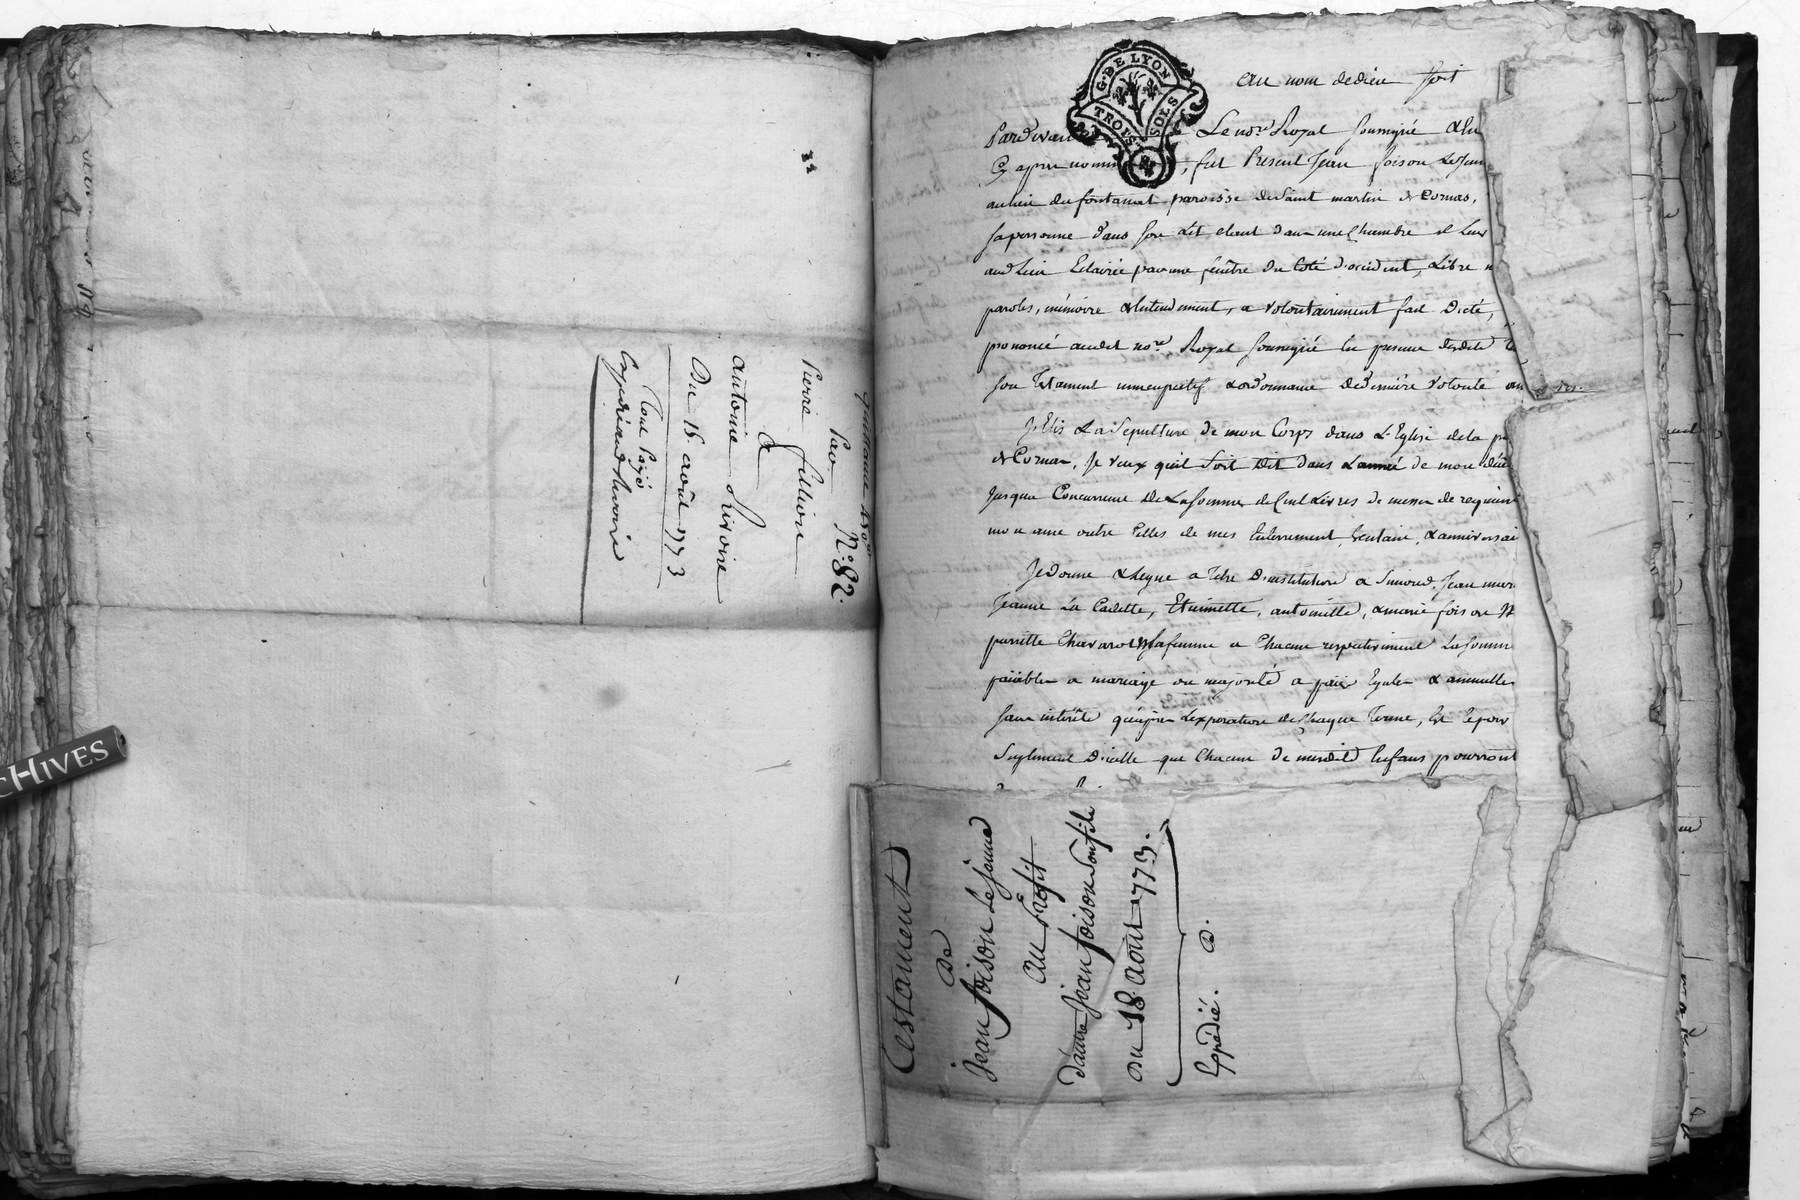 N°. 82.
Quittance 450#
Par
Pierre fillion
&
antoine Rivoire
Du 15 août 1773
Tout Payé
CHIVES
G. DE LYON
TROIS SOLS
au nom de dieu soit
Pardevant Le no.re Royal soussigné &
Cy apres nomm , fut Present Jean foison Le Jeun
au lieu du fontanat paroisse de Saint martin de Cornas,
sa personne dans son Lit etant dans une Chambre
aud Lieu Eclairée par une fenêtre du Coté d'occident, Libre
paroles, mémoire & Entendement, a volontairement fait Dicté,
prononcé audit no.re Royal soussigné En presence desdits
son Testament nuncupatif & ordonnance de Derniere volonté
J'Elis La Sepulture de mon Corps dans L'Eglise de la
de Cornas, Je veux qu'il soit Dit dans L'année de mon
Jusqua Concurrence de La somme de Cent Livres de messes de requiem
mon ame outre Celles de mes Enterrement, trentaine, & anniversai
Je donne & Legue a titre D'institution a Simond, Jean
Jeanne La Cadette, Etiennette, antoinette, & marie foison
perrette Chavarot ma femme a Chacun respectivement La somme
paiable a mariage ou majorité a paies Egales & annuelles
sans intérêts qu'après L'expiration de Chaque Terme, Et
Suplement D'icelle que Chacun de mesdits Enfans pourront
Testament
De
Jean foison Le Jeune
au Profit
D'autre Jean foison son fils
Du 18 Août 1773.
Expédié. D.